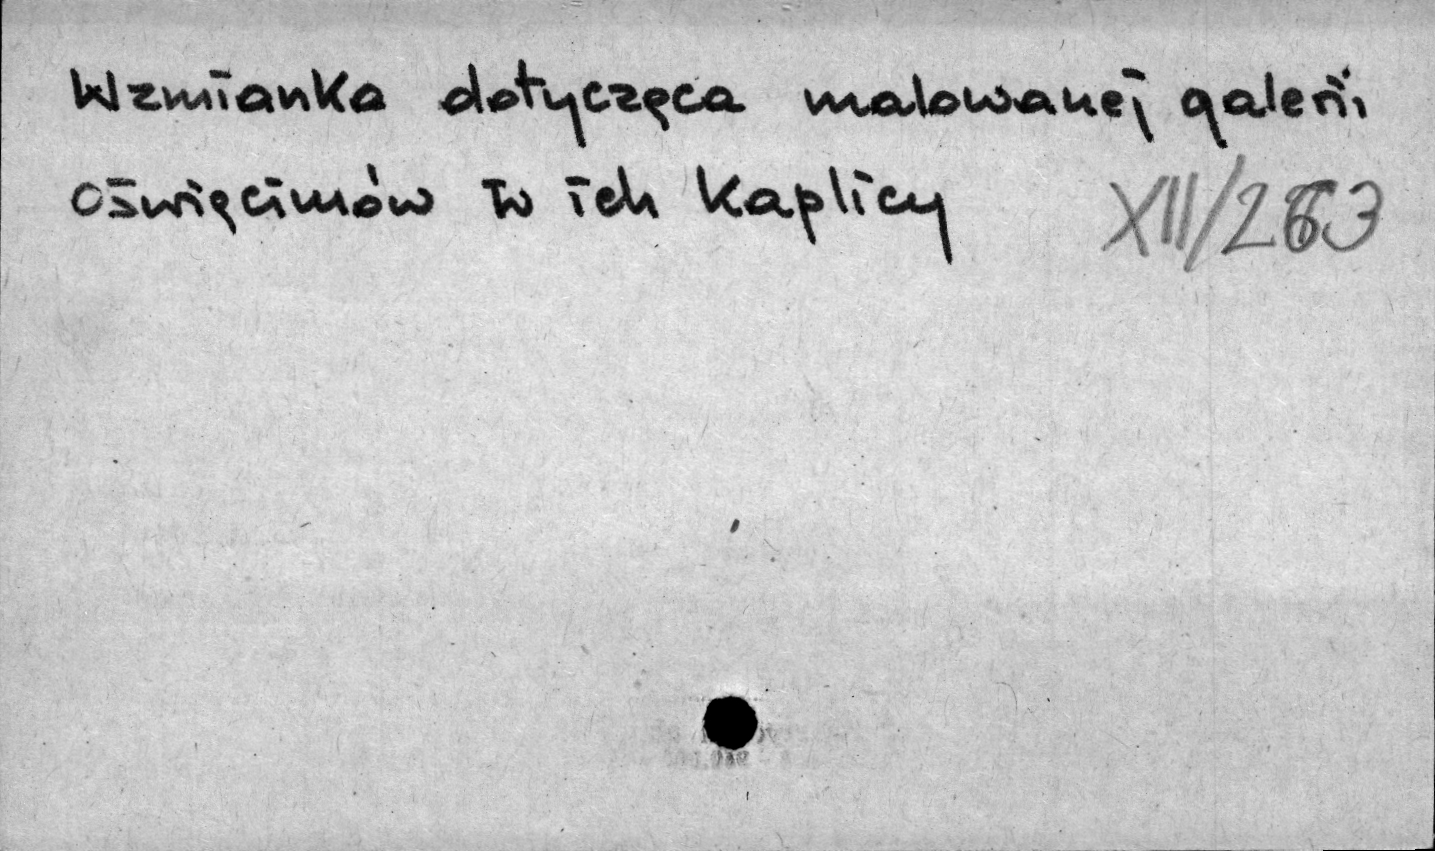 Wzmianka dotycząca malowanej galerii
Oświęcimów w ich Kaplicy XII/263